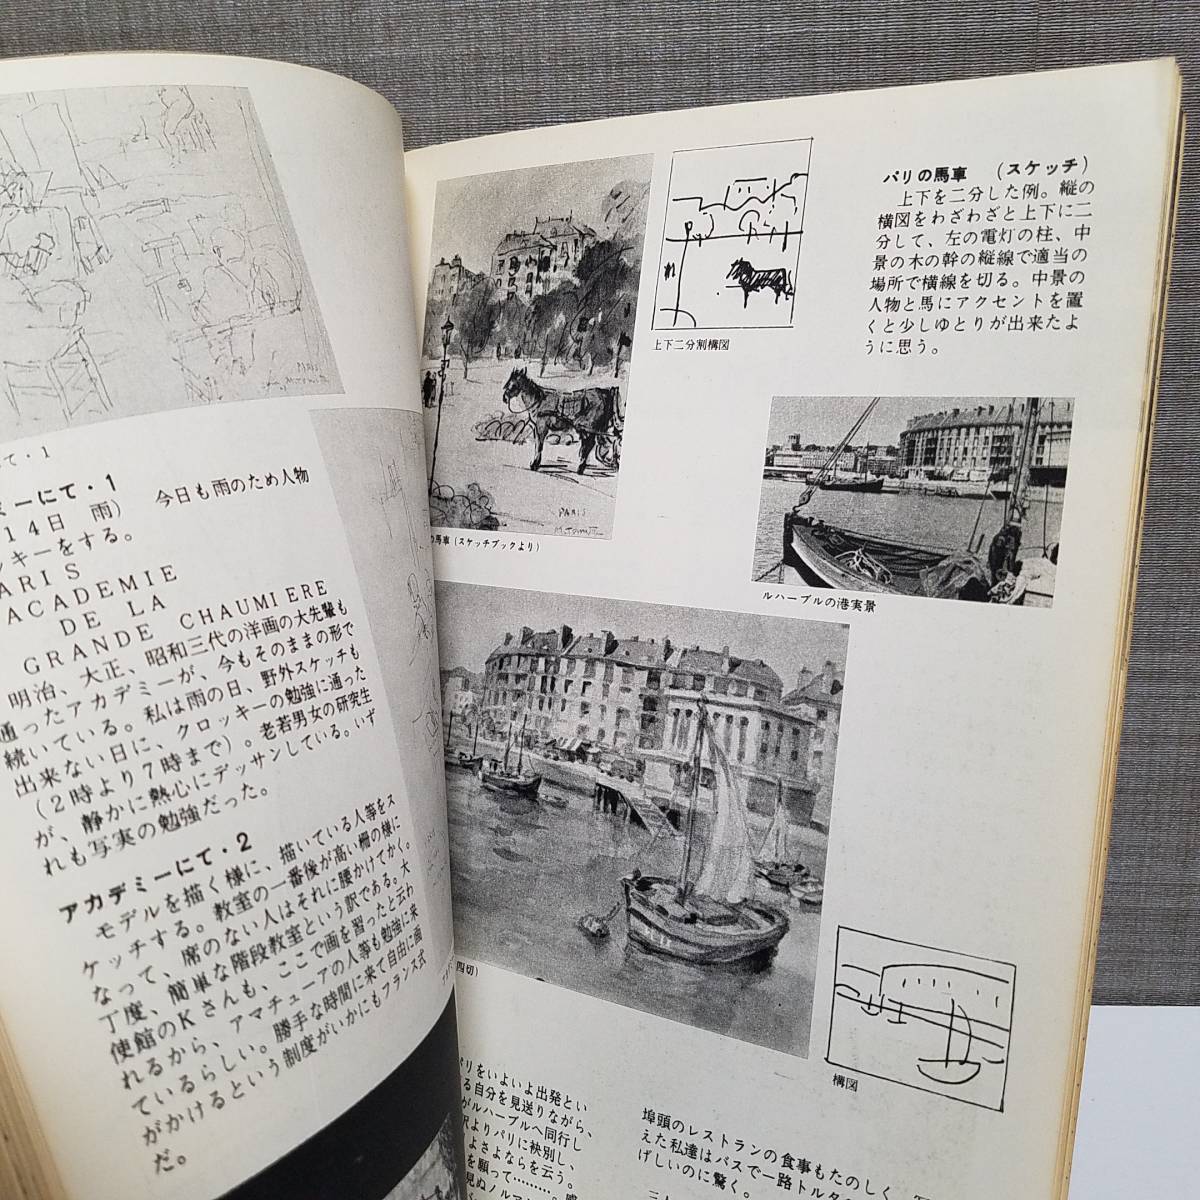 PARIS
にて・1
ミーにて・1
14日 雨) 今日も雨のため人物
ッキーをする。
ARIS
ACADEMIE
DE LA
GRANDE CHAUMIERE
明治、大正、昭和三代の洋画の大先輩も
通ったアカデミーが、今もそのままの形で
続いている。私は雨の日、野外スケッチも
出来ない日に、クロッキーの勉強に通った
(2時より7時まで)。老若男女の研究生
が、静かに熱心にデッサンしている。いず
れも写実の勉強だった。
アカデミーにて・2
モデルを描く様に、描いている人等をス
ケッチする。教室の一番後が高い柵の様に
なって、席のない人はそれに腰かけてかく。
丁度、簡単な階段教室という訳である。大
使館のKさんも、ここで画を習ったと云わ
れるから、アマチューアの人等も勉強に来
ているらしい。勝手な時間に来て自由に画
がかけるという制度がいかにもフランス式
だ。
パリの馬車 (スケッチ)
上下を二分した例。縦の
横図をわざわざと上下に二
分して、左の電灯の柱、中
景の木の幹の縦線で適当の
場所で横線を切る。中景の
人物と馬にアクセントを置
くと少しゆとりが出来たよ
うに思う。
上下二分割構図
PARIS
の馬車(スケッチブックより)
ルハーブルの港実景
四切)
構図
パリをいよいよ出発とい
る自分を見送りながら、
がルハーブルへ同行し
訳よりパリに袂別し、
よさよならを云う。
を願って………。
見ぬノルマ
埠頭のレストランの食事もたのしく、
えた私達はバスで一路トルタ
げしいのに驚く。